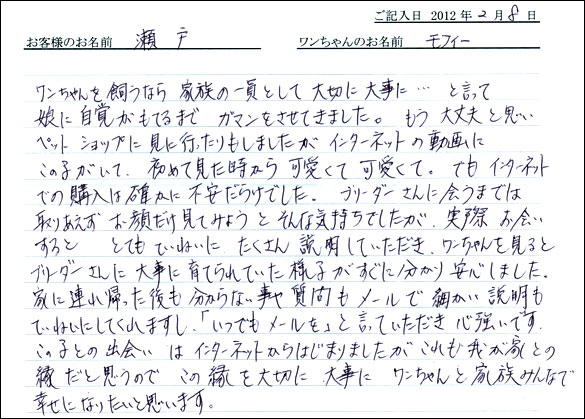 ご記入日 2012年2月8日
お客様のお名前 瀬戸 ワンちゃんのお名前 モフィー
ワンちゃんを飼うなら 家族の一員として 大切に 大事に… と言って
娘に自覚がもてるまで ガマンをさせてきました。 もう大丈夫と思い
ペットショップに見に行ったりもしましたが インターネットの動画に
この子がいて、初めて見た時から 可愛くて 可愛くて。でも インターネット
での購入は確かに 不安だらけでした。 ブリーダーさんに会うまでは
取りあえず お顔だけ見てみようと そんな気持ちでしたが、実際お会い
すると とてもていねいに たくさん説明していただき、ワンちゃんを見ると
ブリーダーさんに 大事に育てられていた様子がすぐに分かり安心しました。
家に連れ帰った後も 分からない事や 質問もメールで細かい説明も
ていねいにしてくれますし、「いつでもメールを」と言っていただき 心強いです。
この子との出会いは インターネットからはじまりましたが これも我が家との
縁だと思うので この縁を大切に 大事に ワンちゃんと家族みんなで
幸せになりたいと思います。